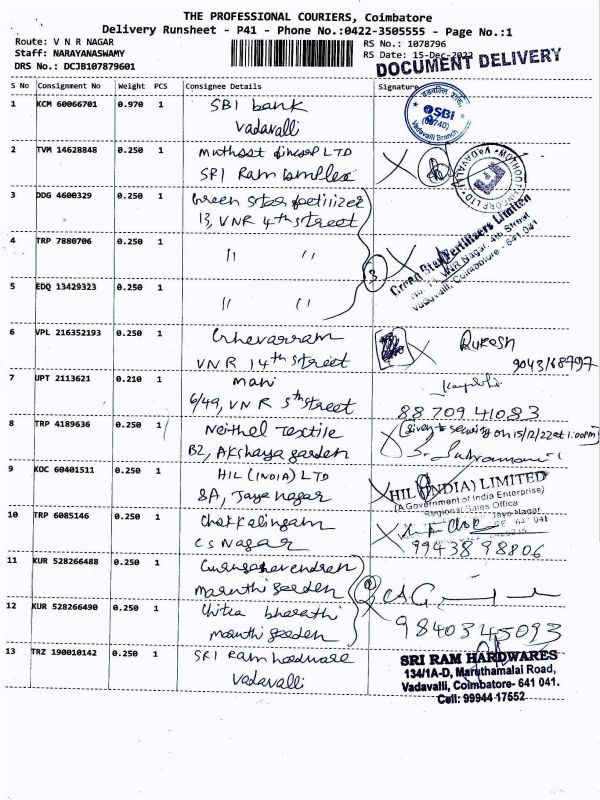 THE PROFESSIONAL COURIERS, Coimbatore
Delivery Runsheet - P41 - Phone No.:0422-3505555 - Page No.:1
Route: V N R NAGAR
Staff: NARAYANASWAMY
DRS No.: DCJB107879601
RS No.: 1078796
RS Date: 15-Dec-2022
DOCUMENT DELIVERY
S No Consignment No Weight PCS Consignee Details Signature
1 KCM 60066701 0.970 1 SBI bank
Vadavalli
SBI
(00740)
Vadavalli Branch
2 TVM 14628848 0.250 1 Muthoot fincorp LTD
SRI Ram complex
3 DDG 4600329 0.250 1 Green star fertilizer
13, VNR 4th street
4 TRP 7880706 0.250 1 " "
3
Green Star Fertilizers Limited
No. 13, VNR Nagar, 4th Street
Vadavalli, Coimbatore - 641 041
5 EDQ 13429323 0.250 1 " "
6 VPL 216352193 0.250 1
VNR 14th street
RUKESH
9043168797
7 UPT 2113621 0.210 1 mani
6/49, VNR 5th street
88709 41083
8 TRP 4189636 0.250 1 Neithal Textile
B2, Akshaya garden
(given to security on 15/12/22 at 1:00pm)
9 KOC 60401511 0.250 1 HIL (INDIA) LTD
8A, Jaya nagar
HIL (INDIA) LIMITED
(A Government of India Enterprise)
Regional Sales Office
Jaya Nagar
641 041
10 TRP 6085146 0.250 1 Chokkalingam
CS Nagar
99438 98806
11 KUR 528266488 0.250 1
maruthi garden
12 KUR 528266490 0.250 1 Chitra bharathi
maruthi garden
9840345093
13 TRZ 190010142 0.250 1 SRI Ram hardware
Vadavalli
SRI RAM HARDWARES
134/1A-D, Maruthamalai Road,
Vadavalli, Coimbatore- 641 041.
Cell: 99944 17552